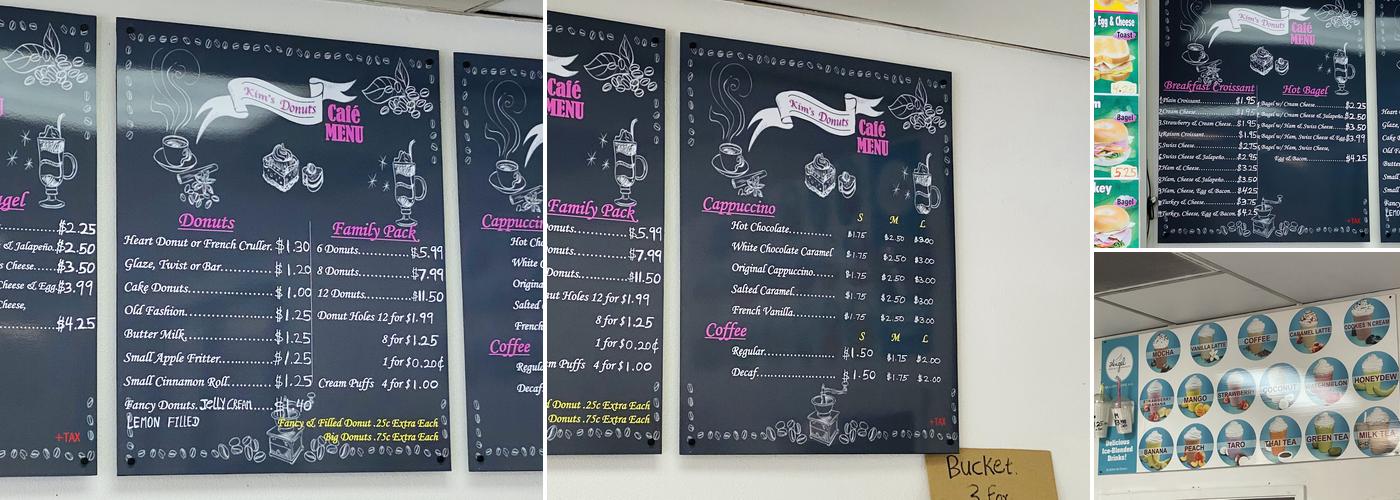 $2.25
& Jalapeño..$2.50
s Cheese.....$3.50
Cheese & Egg.$3.99
Cheese,
.....$4.25
+TAX
Kim's Donuts
Café
MENU
Donuts
Heart Donut or French Cruller. $1.30
Glaze, Twist or Bar........ $1.20
Cake Donuts............ $1.00
Old Fashion............ $1.25
Butter Milk............ $1.25
Small Apple Fritter........ $1.25
Small Cinnamon Roll........ $1.25
Fancy Donuts. JELLY CREAM.... $1.40
LEMON FILLED
Family Pack
6 Donuts............$5.99
8 Donuts............$7.99
12 Donuts............$11.50
Donut Holes 12 for $1.99
8 for $1.25
1 for $0.20¢
Cream Puffs 4 for $1.00
Fancy & Filled Donut .25c Extra Each
Big Donuts .75c Extra Each
Coffee
MENU
Family Pack
Donuts............$5.99
Donuts............$7.99
Donuts............$11.50
ut Holes 12 for $1.99
8 for $1.25
1 for $0.20¢
m Puffs 4 for $1.00
d Donut .25c Extra Each
Donuts .75c Extra Each
Kim's Donuts
Café
MENU
Cappuccino
S M L
Hot Chocolate............ $1.75 $2.50 $3.00
White Chocolate Caramel $1.75 $2.50 $3.00
Original Cappuccino........ $1.75 $2.50 $3.00
Salted Caramel............ $1.75 $2.50 $3.00
French Vanilla............ $1.75 $2.50 $3.00
Coffee
S M L
Regular............ $1.50 $1.75 $2.00
Decaf............ $1.50 $1.75 $2.00
+TAX
Bucket.
3 For
, Egg & Cheese
Toast
Bagel
5.25
key
Bagel
Kim's Donuts
Café
MENU
Breakfast Croissant
Plain Croissant....... $1.95
Cream Cheese....... $1.95
Strawberry & Cream Cheese.... $1.95
Raison Croissant....... $1.95
Swiss Cheese....... $2.75
Swiss Cheese & Jalapeño.... $2.95
Ham & Cheese....... $3.25
Ham, Cheese & Jalapeño.... $3.50
Ham, Cheese, Egg & Bacon.... $4.25
Turkey & Cheese....... $3.75
Turkey, Cheese, Egg & Bacon. $4.25
Hot Bagel
Bagel w/ Cream Cheese....... $2.25
Bagel w/ Cream Cheese & Jalapeño. $2.50
Bagel w/ Ham & Swiss Cheese.... $3.50
Bagel w/ Ham, Swiss Cheese & Egg. $3.99
Bagel w/ Ham, Swiss Cheese,
Egg & Bacon....... $4.25
+TAX
MOCHA
VANILLA LATTE
COFFEE
CARAMEL LATTE
COOKIES 'N CREAM
MANGO
STRAWBERRY
COCONUT
WATERMELON
HONEYDEW
BANANA
PEACH
TARO
THAI TEA
GREEN TEA
MILK TEA
Delicious
Ice-Blended
Drinks!